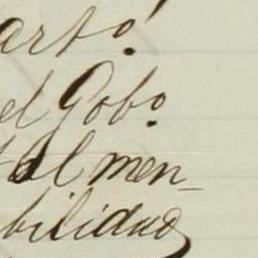 arto!
el Gobo.
al men-
bilidad